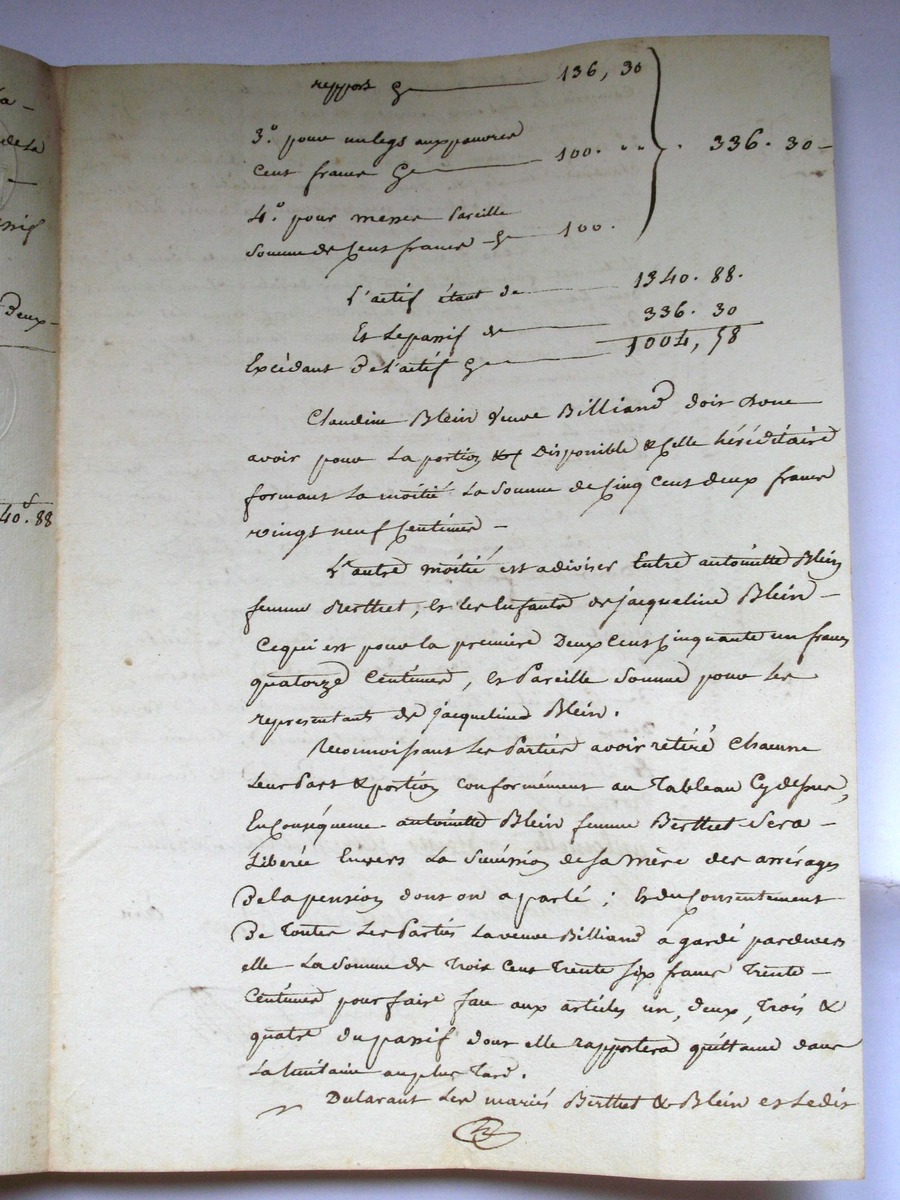 report Cy 136, 30
3.° pour un legs aux pauvres
Cent francs Cy 100. 336. 30
4.° pour messes Pareille
Somme de Cent francs Cy 100.
L'actif étant de 1340. 88.
Et Le passif de 336. 30
Excédant De L'actif Cy 1004, 58
Claudine Blein veuve Billiand doit Donc
avoir pour La portion Disponible & Celle héréditaire
formant La moitié La Somme de Cinq Cent deux francs
vingt neuf Centimes
L'autre moitié est a diviser Entre antoinette Blein
femme Berthet, et les Enfants de jacqueline Blein
Ce qui est pour la premiere Deux Cent Cinquante un francs
quatorze Centimes, et Pareille Somme pour les
representants de jacqueline Blein.
Reconnoissant Les Parties avoir retiré Chacune
Leur Part & portion conformément au Tableau Cy dessus,
En Conséquence antoinette Blein femme Berthet Sera
Libérée Envers La Succession de Sa mère des arrérages
De la pension dont on a parlé ; Et du Consentement
De Toutes Les Parties La veuve Billiand a gardé pardevers
elle La Somme de Trois Cent Trente Six francs Trente
Centimes pour faire face aux articles un, deux, Trois &
quatre du passif dont elle rapportera quittance dans
La huitaine au plus Tard.
Déclarant Les mariés Berthet & Blein et Ledit
40.f 88
Deux
de La